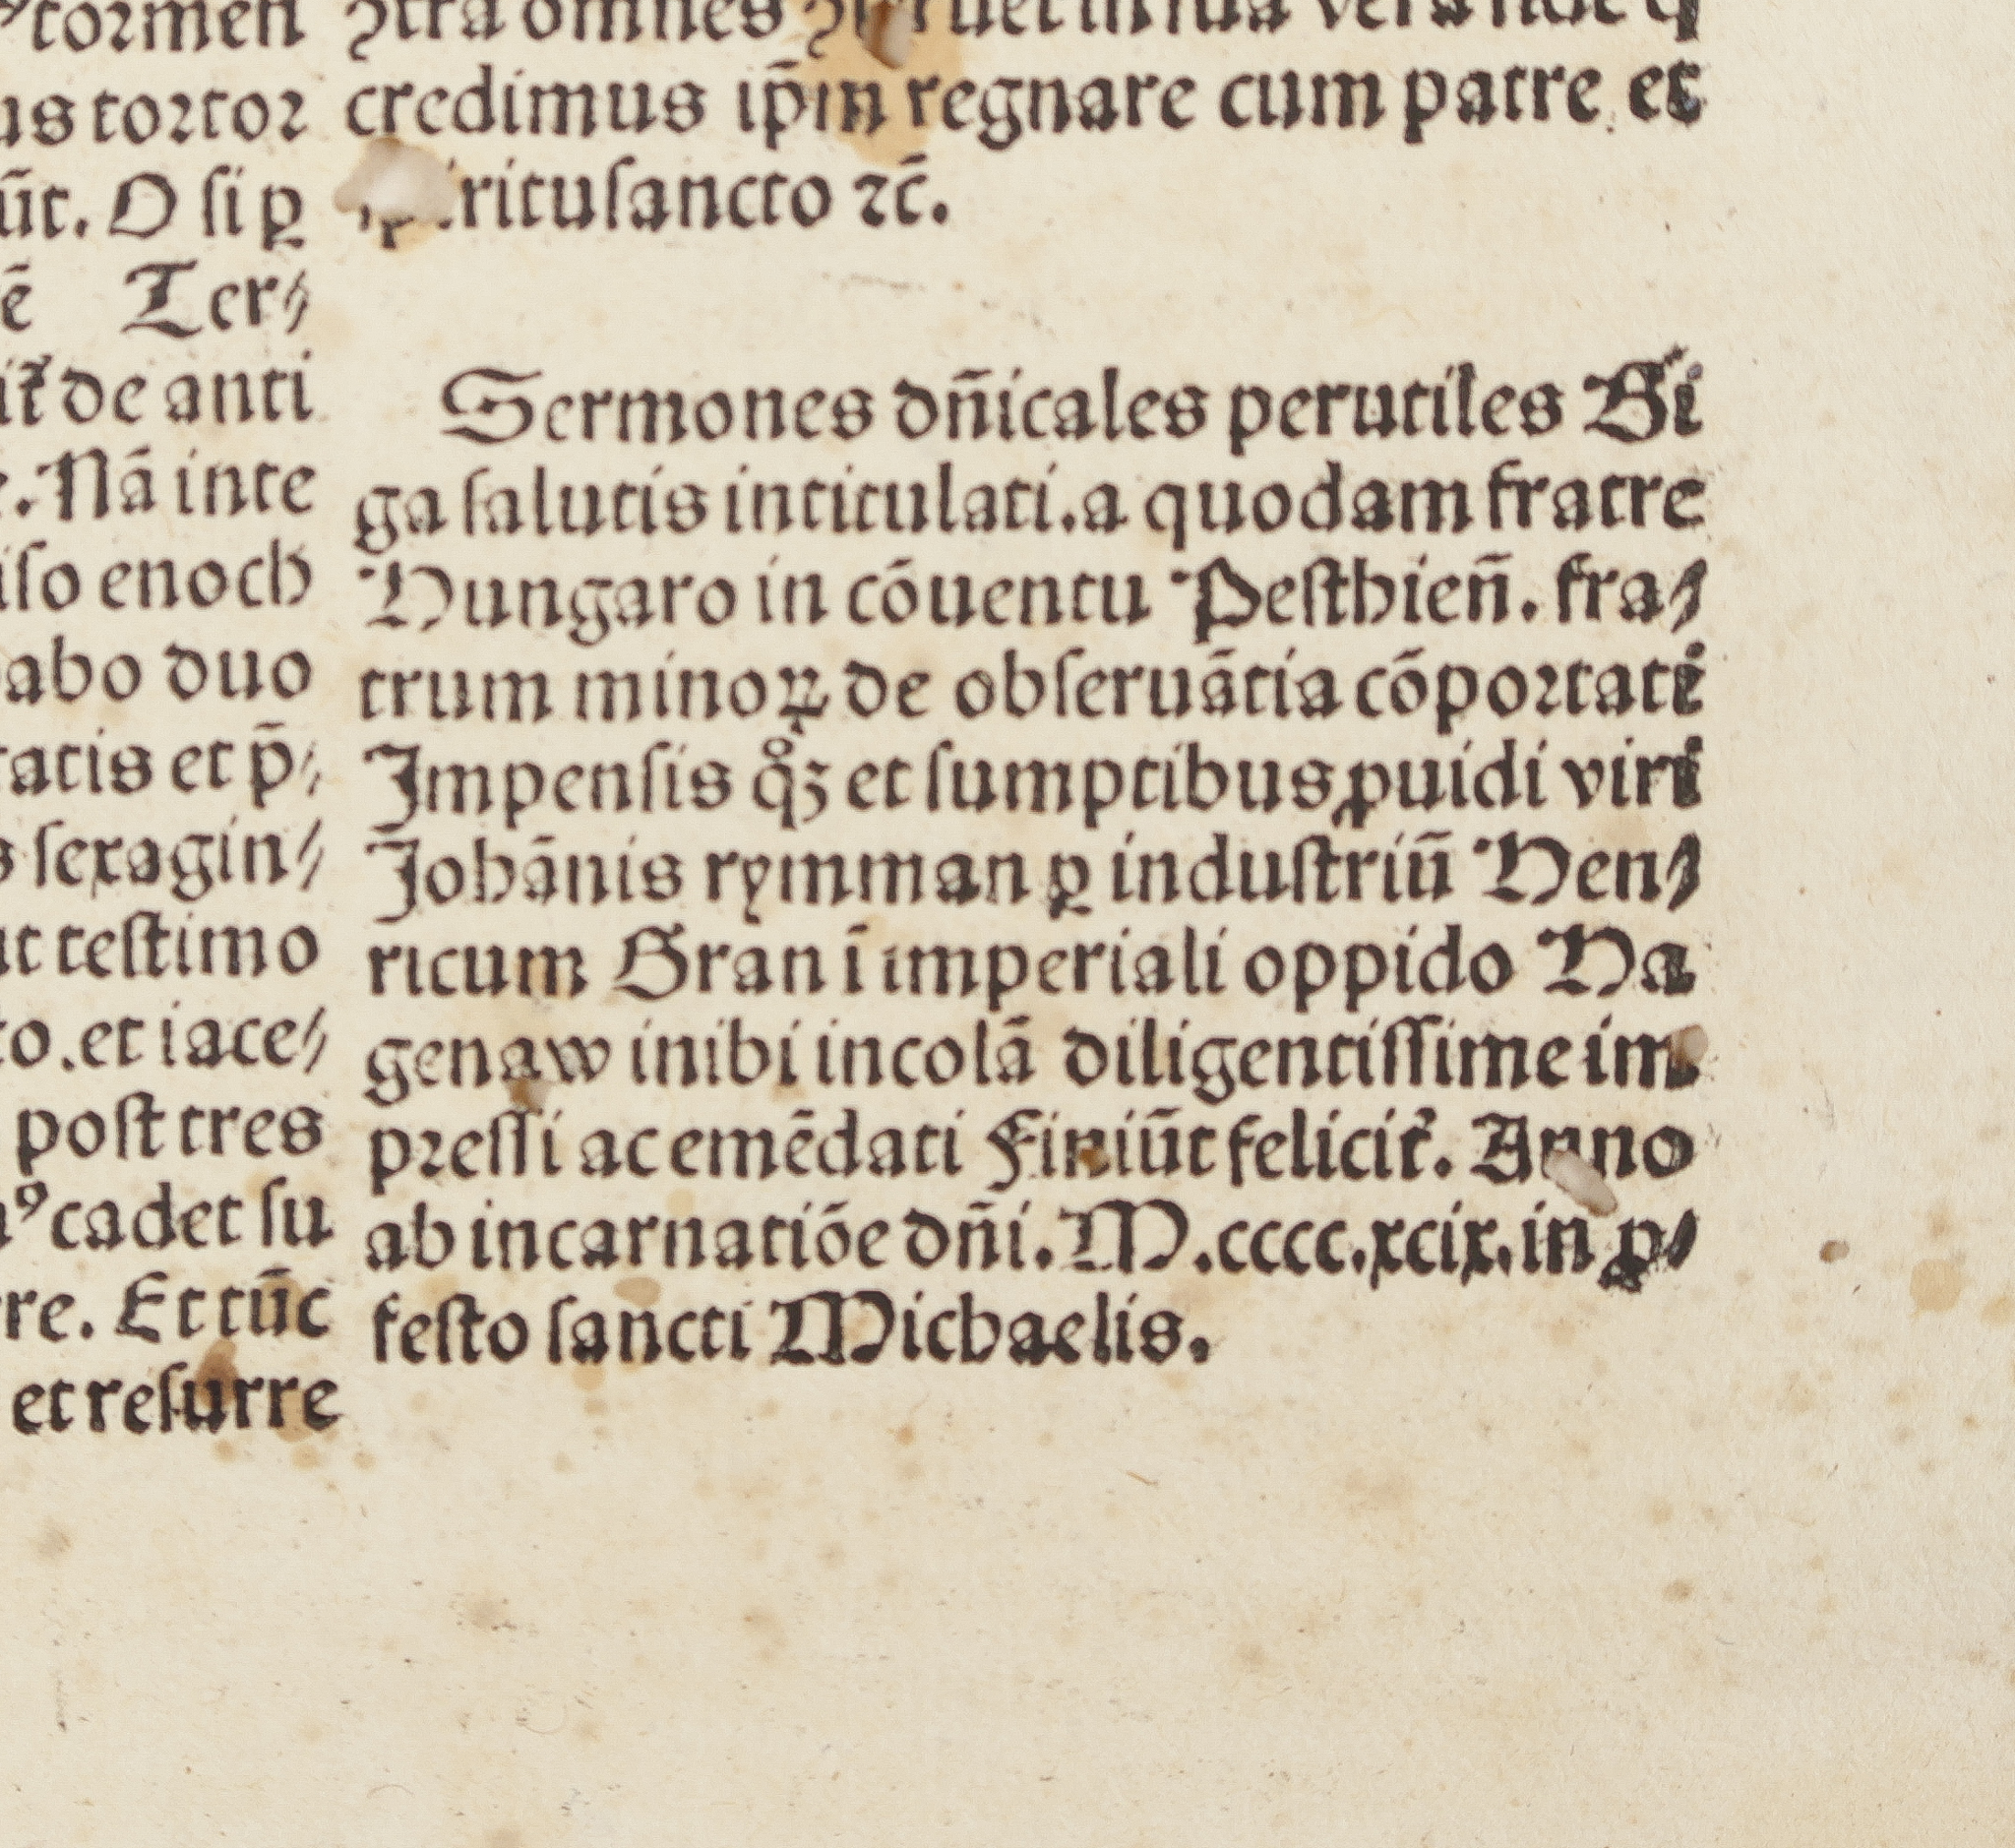 tormen
us tortor
ūt. O si ꝑ
ē Ter⸗
it᷑ de anti
e. Nā inte
iso enoch
abo duo
tatis et p̄⸗
s sexagin⸗
ut testimo
to. et iace⸗
post tres
ꝰ cadet su
re. Et tūc
et resurre
ꝯtra omnes
credimus ip̄m regnare cum patre et
spiritusancto ⁊c̄.
Sermones dn̄icales perutiles Bi
ga salutis intitulati. a quodam fratre
Hungaro in cōuentu Pesthien̄. fra⸗
trum minoꝝ de obseruātia cōportati
Impensis qͦꝫ et sumptibus ꝓuidi viri
Johānis rymman ꝑ industriū Hen⸗
ricum Gran ī imperiali oppido Ha
genaw inibi incolā diligentissime im
pressi ac emēdati Finiūt felicit᷑. Anno
ab incarnatiōe dn̄i. M.cccc.xcix. in ꝓ⸗
festo sancti Michaelis.